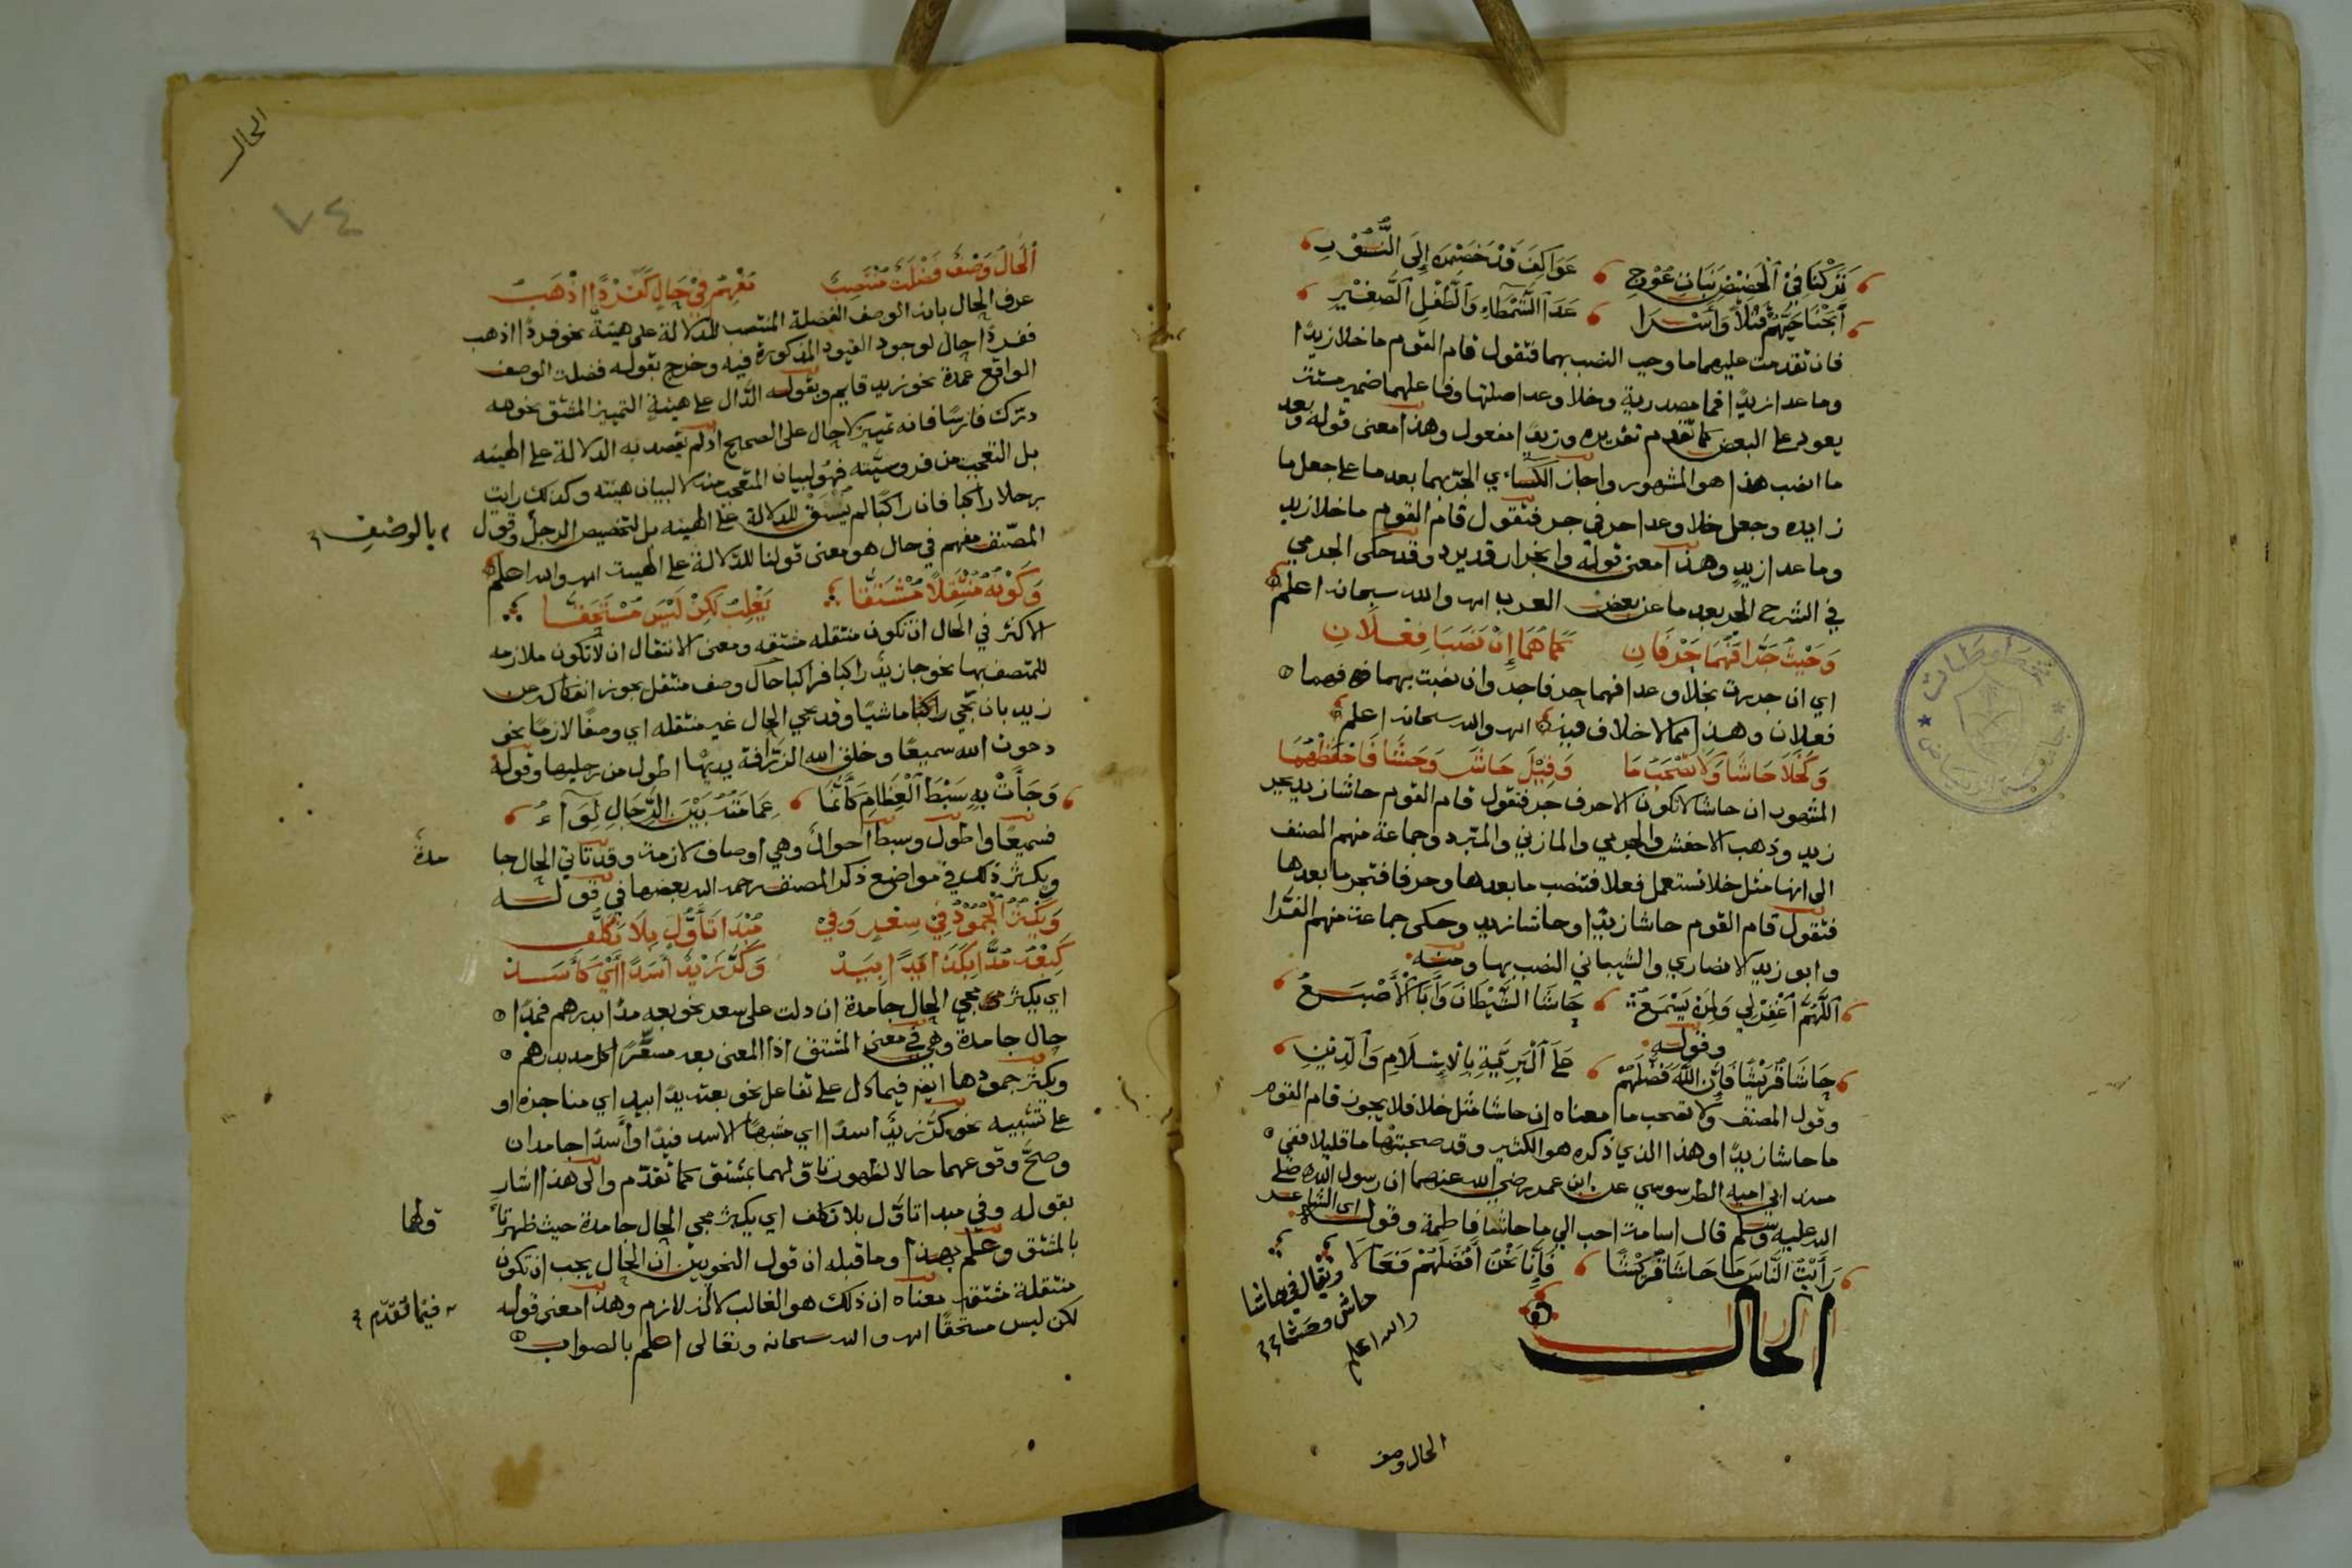 تركنا في الحضيض بنات عوج عواكف قد خضعن إلى النسور
أبحنا حيهم قتلا وأسرا عدا الشمطاء والطفل الصغير
فان تقدمت عليهما ما وجب النصب بهما فتقول قام القوم ما خلا زيدًا
وما عدا زيدًا فما مصدرية وخلا وعدا صلتها وفاعلهما ضمير مستتر
يعود على البعض كما تقدم تقديره وزيدًا مفعول وهذا معنى قوله وبعد
ما انصب هذا هو المشهور واجاز الكسائي الجر بهما بعد ما على جعل ما
زايده وجعل خلا وعدا حرفي جر فتقول قام القوم ما خلا زيد
وما عدا زيد وهذا معنى قوله وانجرار قد يرد وقد حكى الجرمي
في الشرح الجر بعد ما عن بعض العرب اه والله سبحانه اعلم
وحيث جرا فهما حرفان كما هما إن نصبا فعلان
اي ان جررت بخلا وعدا فهما حرفا جر وان نصبت بهما فهما
فعلان وهذا مما لا خلاف فيه اه والله سبحانه اعلم
وكخلا حاشا ولا تصحب ما وقيل حاش وحشا فاحفظهما
المشهور ان حاشا لا تكون الا حرف جر فتقول قام القوم حاشا زيد بجر
زيد وذهب الاخفش والجرمي والمازني والمبرد وجماعة منهم المصنف
الى انها مثل خلا تستعمل فعلا فتنصب ما بعدها وحرفا فتجر ما بعدها
فتقول قام القوم حاشا زيدًا وحاشا زيد وحكى جماعة منهم الفرا
وابو زيد الانصاري والشيباني النصب بها ومنه
اللهم اغفر لي ولمن يسمع حاشا الشيطان وأبا الأصبع
وقوله
حاشا قريشا فإن الله فضلهم على البرية بالإسلام والدين
وقول المصنف ولا تصحب ما معناه ان حاشا مثل خلا فلا يجوز قام القوم
ما حاشا زيدًا وهذا الذي ذكره هو الكثير وقد صحبتها ما قليلا ففي
مسند ابي امية الطرسوسي عن ابن عمر رضي الله عنهما ان رسول الله صلى
الله عليه وسلم قال اسامة احب الي ما حاشا فاطمة وقول الشاعر
رأيت الناس ما حاشا قريشا فإنا نحن أفضلهم فعالا
ويقال في حاشا
حاش وحشا
والله اعلم
الحال
الحال وصف
الحال
٧٤
الحال وصف فضلة منتصب مفهم في حال كفردًا اذهب
عرف الحال بانه الوصف الفضلة المنتصب للدلالة على هيئة نحو فردًا اذهب
ففردًا حال لوجود القيود المذكورة فيه وخرج بقوله فضلة الوصف
الواقع عمدة نحو زيد قايم وبقوله الدال على هيئة التمييز المشتق نحو لله
دترك فارسًا فانه تمييز لا حال على الصحيح اذ لم يقصد به الدلالة على الهيئه
بل التعجب من فروسيته فهو لبيان المتعجب منه لا لبيان هيئته وكذلك رايت
رجلا راكبا فان راكبًا لم يسق للدلالة على الهيئه بل لتخصيص الرجل وقول
بالوصف
المصنف مفهم في حال هو معنى قولنا للدلالة على الهيئة اه والله اعلم
وكونه منتقلا مشتقا يغلب لكن ليس مستحقا
الاكثر في الحال ان تكون منتقله مشتقه ومعنى الانتقال ان لا تكون ملازمه
للمتصف بها نحو جا زيد راكبا فراكبا حال وصف منتقل بجوز انفكاكه عن
زيد بان يجي راكبا ماشيًا وقد يجي الحال غير منتقله اي وصفًا لازمًا نحو
دعوت الله سميعًا وخلق الله الزرافة يديها اطول من رجليها وقوله
وجاءت به سبط العظام كأنما عمامته بين الرجال لواء
فسميعًا واطول وسبط احوال وهي اوصاف لازمة وقد تاتي الحال جا
مدة
ويكثر ذلك في مواضع ذكر المصنف رحمه الله بعضها في قوله
ويكثر الجمود في سعر وفي مبدا تأول بلا تكلف
كبعه مدا بكذا يدا بيد وكر زيد أسدا أي كأسد
اي يكثر مجي الحال جامدة ان دلت على سعر نحو بعه مدًا بدرهم فمدًا
حال جامدة وهي في معنى المشتق اذ المعنى بعه مسعرًا كل مد بدرهم
ويكثر جمودها ايضا فيما دل على تفاعل نحو بعته يدًا بيد اي مناجزة او
على تشبيه نحو كر زيد أسدًا اي مشبهًا الاسد فيدًا وأسدًا جامدان
وصح وقوعهما حالا لظهور تاولهما بمشتق كما تقدم والى هذا اشار
بقوله وفي مبدا تاول بلا تكلف اي يكثر مجي الحال جامدة حيث ظهر تا
ولها
بالمشتق وعلم بهذا وما قبله ان قول النحويين ان الحال يجب ان تكون
منتقلة مشتقه معناه ان ذلك هو الغالب لا انه لازم وهذا معنى قوله
فيما تقدم
لكن ليس مستحقًا اه والله سبحانه وتعالى اعلم بالصواب